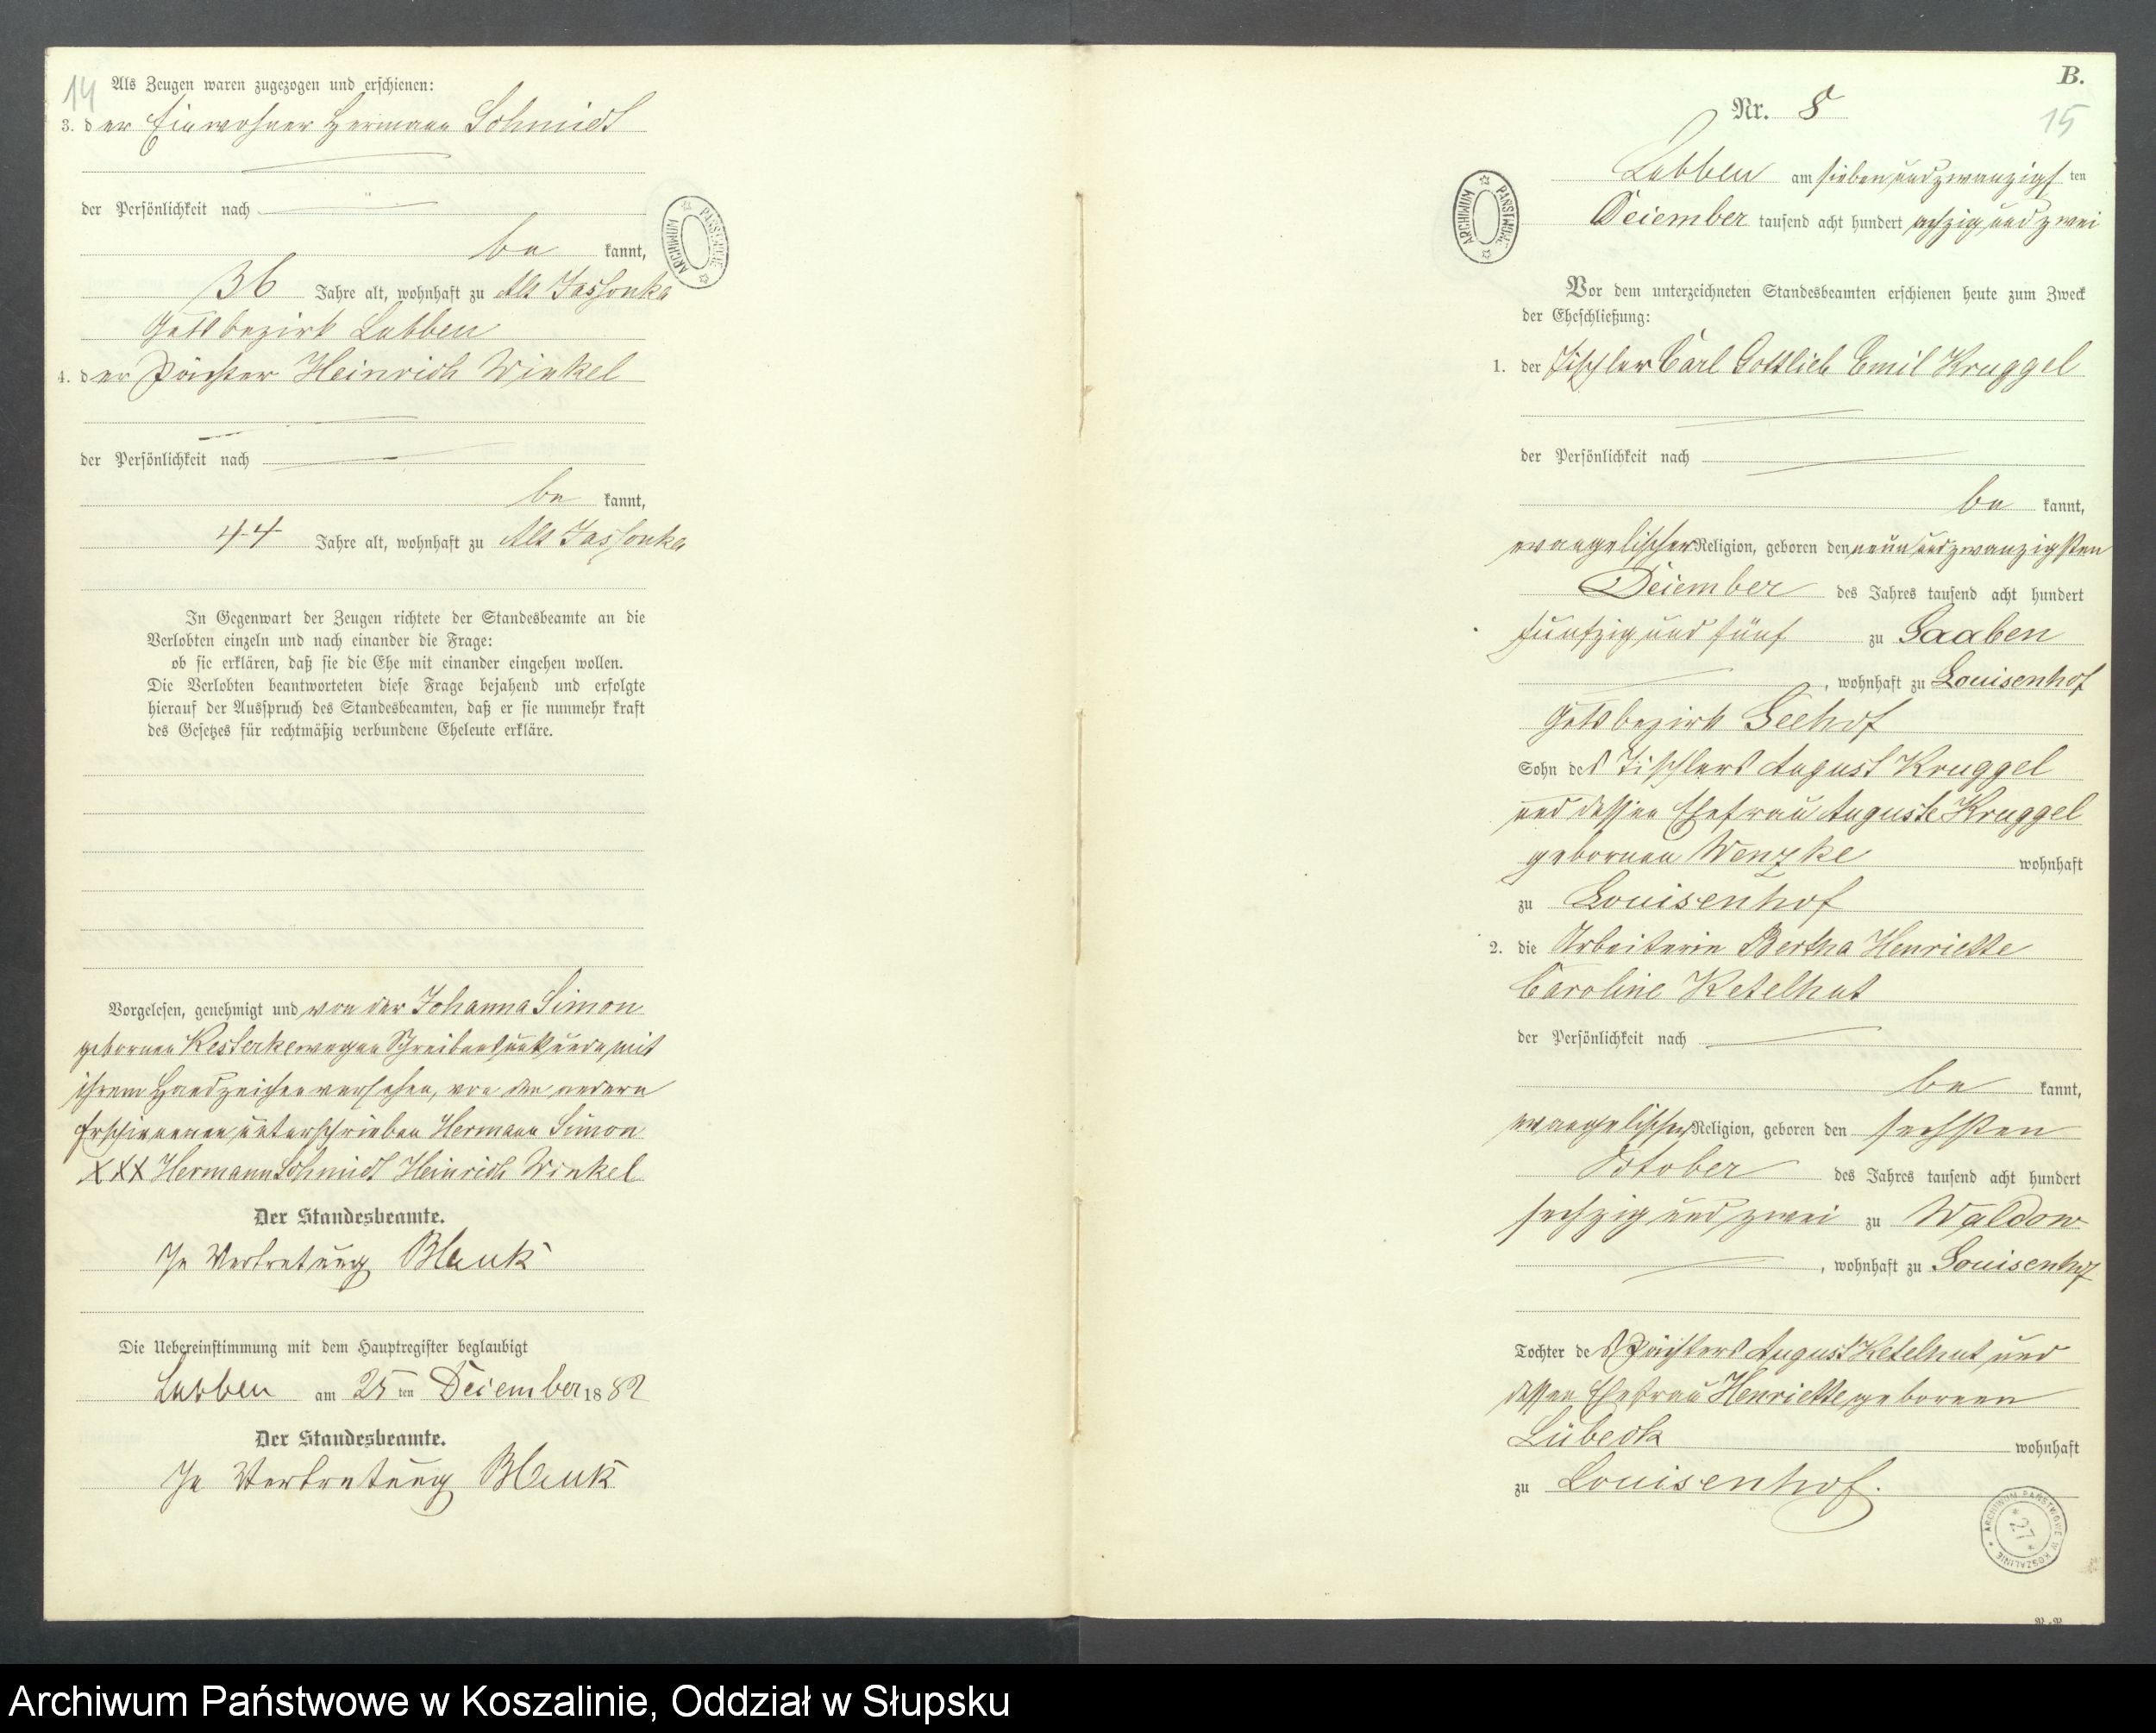 14
Als Zeugen waren zugezogen und erschienen:
3. der Einwohner Hermann Schmidt
der Persönlichkeit nach
be kannt,
36 Jahre alt, wohnhaft zu Alt Jassonke
Gutsbezirk Lubben
4. der Pächter Heinrich Winkel
der Persönlichkeit nach
be kannt,
44 Jahre alt, wohnhaft zu Alt Jassonke
In Gegenwart der Zeugen richtete der Standesbeamte an die
Verlobten einzeln und nach einander die Frage:
ob sie erklären, daß sie die Ehe mit einander eingehen wollen.
Die Verlobten beantworteten diese Frage bejahend und erfolgte
hierauf der Ausspruch des Standesbeamten, daß er sie nunmehr kraft
des Gesetzes für rechtmäßig verbundene Eheleute erkläre.
Vorgelesen, genehmigt und von der Johanna Simon
geborenen Kesterke wegen Schreibensunkunde mit
ihrem Handzeichen versehen, von den andern
Erschienenen unterschrieben Hermann Simon
XXX Hermann Schmidt Heinrich Winkel
Der Standesbeamte.
In Vertretung Blauk
Die Uebereinstimmung mit dem Hauptregister beglaubigt
Lubben am 25 ten December 1882
Der Standesbeamte.
In Vertretung Blauk
ARCHIWUM PAŃSTWOWE
B.
15
Nr. 8
Lubben am siebenundzwanzigs ten
December tausend acht hundert achzig und zwei
ARCHIWUM PAŃSTWOWE
Vor dem unterzeichneten Standesbeamten erschienen heute zum Zweck
der Eheschließung:
1. der Tischler Carl Gottlieb Emil Kruggel
der Persönlichkeit nach
be kannt,
evangelischer Religion, geboren den neunundzwanzigsten
December des Jahres tausend acht hundert
fünfzig und fünf zu Gaaben
, wohnhaft zu Louisenhof
Gutsbezirk Seehof
Sohn des Tischlers August Kruggel
und dessen Ehefrau Auguste Kruggel
geborenen Wenzke wohnhaft
zu Louisenhof
2. die Arbeiterin Bertha Henriette
Caroline Ketelhut
der Persönlichkeit nach
be kannt,
evangelischer Religion, geboren den sechsten
October des Jahres tausend acht hundert
sechzig und zwei zu Waldow
, wohnhaft zu Louisenhof
Tochter des Pächters August Ketelhut und
dessen Ehefrau Henriette geborenen
Lübeck wohnhaft
zu Louisenhof.
ARCHIWUM PAŃSTWOWE W KOSZALINIE
27
Archiwum Państwowe w Koszalinie, Oddział w Słupsku